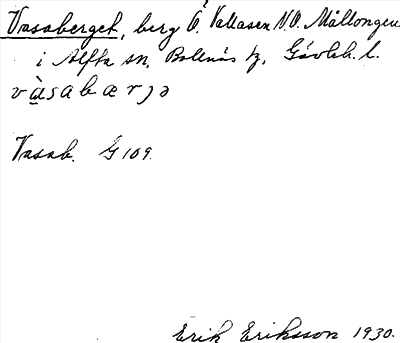 Vasaberget, berg Ö. Vallasen N.O. Mållongen
i Alfta sn, Bollnäs tg, Gävleb. l.
v a̱̍ s a b æ r j ə
Vasab. G 109.
Erik Eriksson 1930.